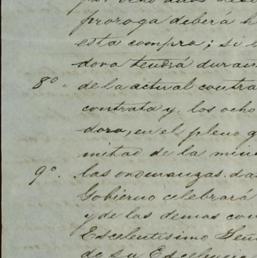 por ocho años
proroga deberá
esta compra; si
dora tendrá duran
8º. de la actual contra
contrata y los ocho
dora, en el pleno g
mitad de la min
9º. las
Gobierno celebrará
y de las demas con
Escelentisimo Señ
de Su Escelen